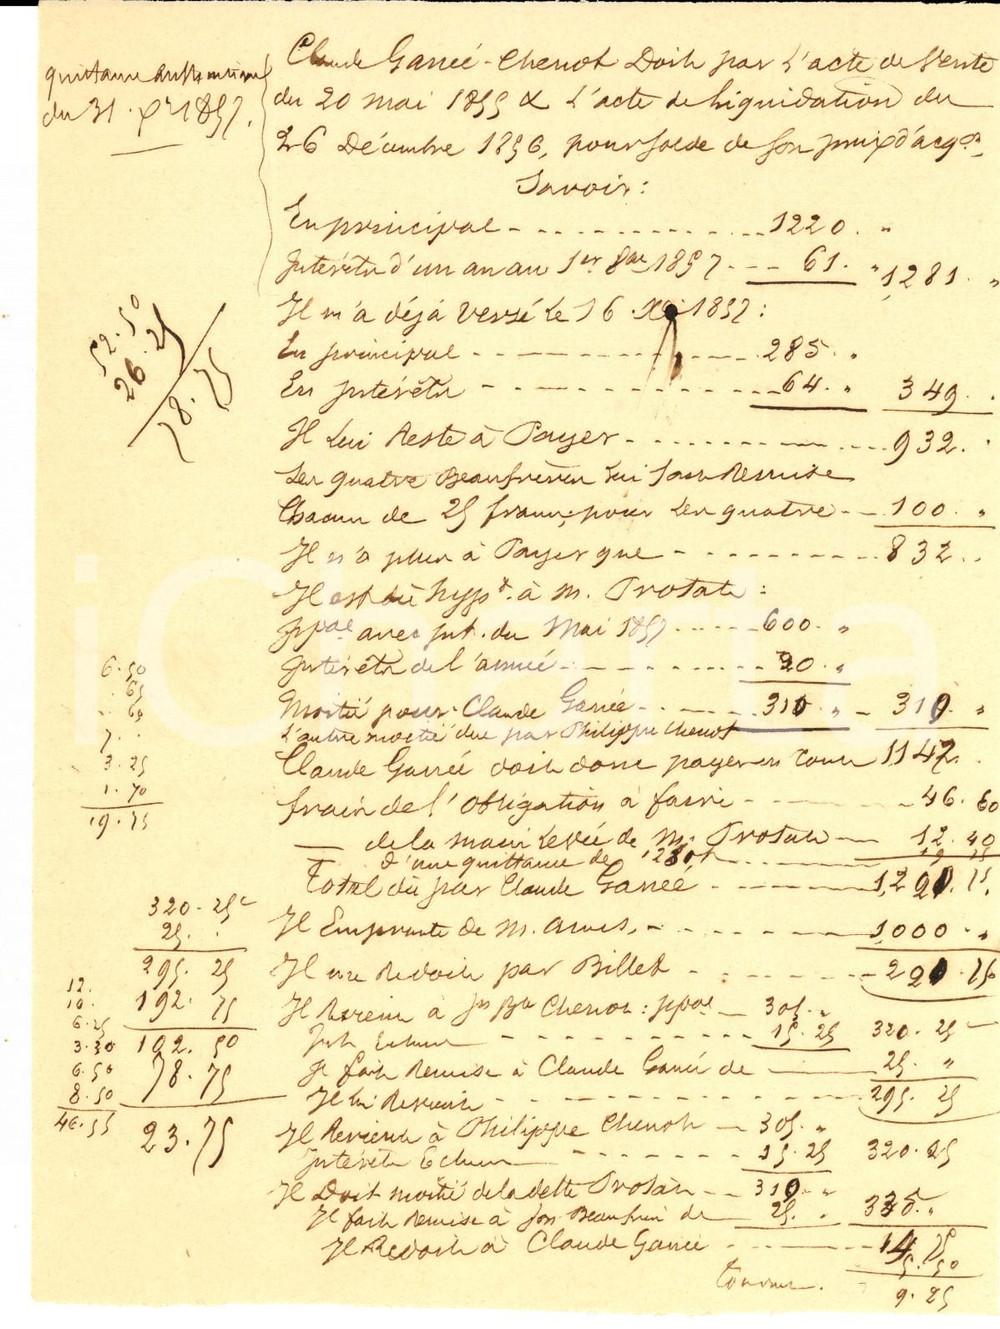 quittance authentique
du 31 Xbre 1857.
Claude Garreé-Chenot Doit par l'acte de Vente
du 20 mai 1855 & l'acte de liquidation du
26 Décembre 1856, pour solde de son prix d'acqon,
Savoir:
En principal - - - 1220. "
Intérêts d'un an au 1er 8bre 1857 - - - 61. " 1281. "
Il m'a déjà versé le 16 1857:
En principal - - - 285. "
En Intérêts - - - 64. " 349. "
Il Lui Reste à Payer - - - 932. "
Les quatre Beaufrères lui font Remise
Chacun de 25 francs, pour les quatre - - 100. "
Il n'a plus à Payer que - - - 832. "
Il est dû hypot. à M. Protat:
ppal avec int. du Mai 1857 - - - 600. "
Intérêts de l'année - - - 20. "
Moitié pour Claude Garreé - - - 310. " - 310. "
L'autre moitié due par Philippe Chenot
Claude Garreé doit donc payer en tout 1142.
frais de l'obligation à faire - - - 46. 60
— de la main levée de M. Protat — 12. 40
d'une quittance de - - - 19 15
Total dû par Claude Garreé - - - 1,220. 15.
Il Emprunte de M. - - - 1,000. "
Il me Redoit par Billet - - - 220. 15
Il Revient à Jn Bte Chenot: ppal — 305. "
Int. Echus - - - 15. 25 320. 25
Il fait Remise à Claude Garreé de — 25. "
Il lui Revient - - - 295. 25
Il Revient à Philippe Chenot — 305. "
Intérêts Echus - - - 15. 25 320. 25
Il Doit moitié de la dette Protat - - 310. "
Il fait Remise à son Beaufrère de — 25. " 335. "
Il Redoit à Claude Garreé - - - 14 75
5. 50
9. 25
52. 50
26. 25
78. 75
6. 50
65
60
7. "
3. 25
1. 70
19. 15
320. 25
25. "
295. 25
192. 75
102. 50
78. 75
23. 75
12.
10.
6. 25
3. 30
6. 50
8. 50
46. 55
iCharta